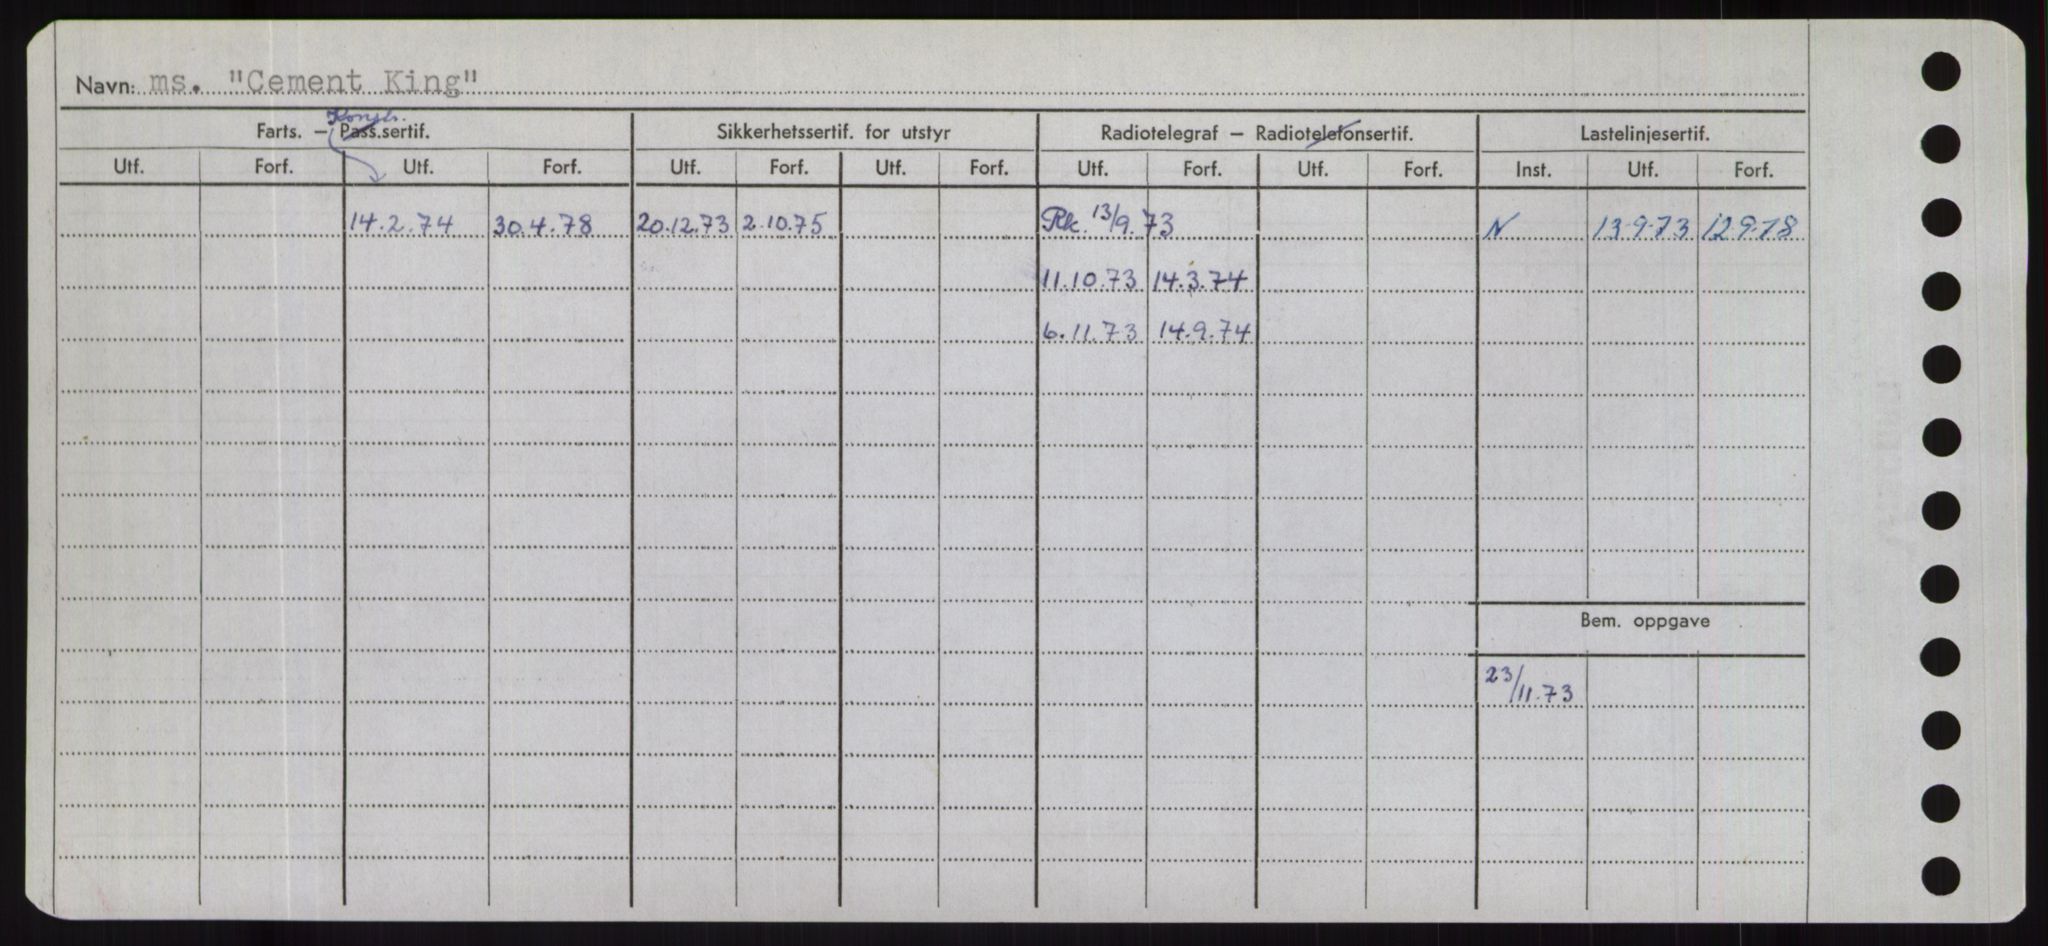 Navn: ms. "Cement King"
Konstr.
Farts. – Pass.sertif. Sikkerhetssertif. for utstyr Radiotelegraf – Radiotelefonsertif. Lastelinjesertif.
Utf. Forf. Utf. Forf. Utf. Forf. Utf. Forf. Utf. Forf. Utf. Forf. Inst. Utf. Forf.
14.2.74 30.4.78 20.12.73 2.10.75 Rk. 13/9.73 N 13-9-73 12.9.78
11.10.73 14.3.74
6.11.73 14.9.74
Bem. oppgave
23/11.73